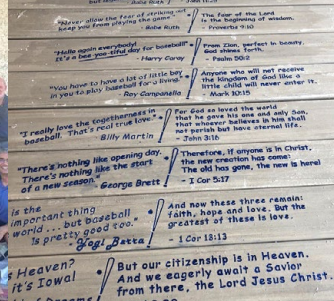 - Babe Ruth
- John 11:35
"Never allow the fear of striking out
keep you from playing the game."
- Babe Ruth
The fear of the Lord
is the beginning of wisdom.
- Proverbs 9:10
"Hello again everybody!
It's a bee-yoo-tiful day for baseball!"
- Harry Caray
From Zion, perfect in beauty,
God shines forth.
- Psalm 50:2
"You have to have a lot of little boy
in you to play baseball for a living."
Roy Campanella
Anyone who will not receive
the kingdom of God like a
little child will never enter it.
- Mark 10:15
"I really love the togetherness in
baseball. That's real true love."
- Billy Martin
For God so loved the world
that he gave his one and only Son,
that whoever believes in him shall
not perish but have eternal life.
- John 3:16
"There's nothing like opening day.
There's nothing like the start
of a new season."
- George Brett
Therefore, if anyone is in Christ,
the new creation has come:
The old has gone, the new is here!
- I Cor 5:17
is the
important thing
world ... but baseball
is pretty good too."
- Yogi Berra
And now these three remain:
faith, hope and love. But the
greatest of these is love.
- 1 Cor 13:13
Heaven?
it's Iowa!
But our citizenship is in Heaven.
And we eagerly await a Savior
from there, the Lord Jesus Christ.